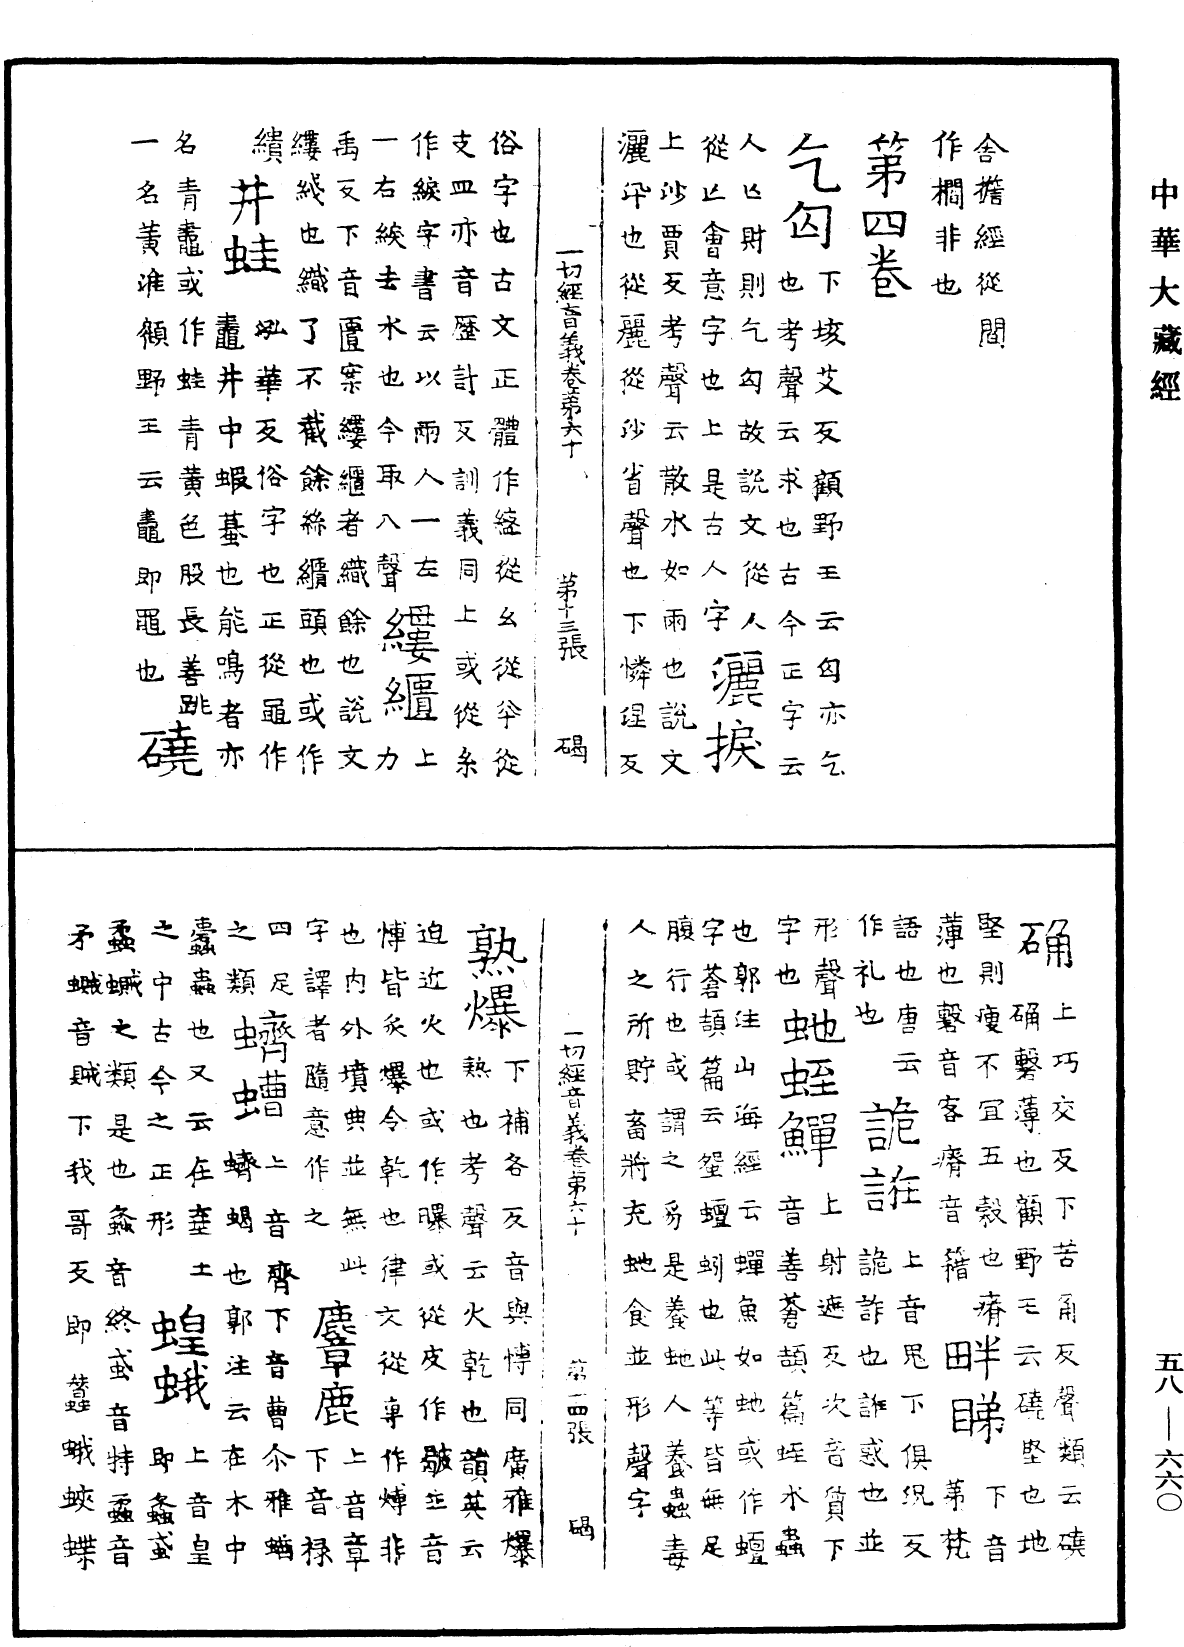 中華大藏經
舍擔經從閻
作櫩非也
第四卷
乞匃
下垓艾反顧野王云匃亦乞
也考聲云求也古今正字云
人亾財則乞匃故說文從人
從亾會意字也上是古人字
灑捩
上沙賈反考聲云散水如雨也說文
灑汛也從麗從沙省聲也下憐涅反
一切經音義卷第六十　第十三張　碣
俗字也古文正體作盭從幺從㚔從
支皿亦音歷計反訓義同上或從糸
作綟字書云以兩人一左
一右綟去水也今取入聲
縷繩
上力
禹反下音匱案縷繩者織餘也說文
縷綫也織了不截餘絲繢頭也或作
繢
井蛙
泓華反俗字也正從黽作
鼃井中蝦蟇也能鳴者亦
名青鼃或作蛙青黃色股長善跳
一名黃淮顧野王云鼃即黽也
磽
确
上巧交反下苦角反聲類云磽
确礊薄也顧野王云磽堅也地
堅則瘦不宜五穀也瘠音
薄也礊音客瘠音籍
畔睇
下音
第梵
語也唐云
作礼也
詭誑
上音鬼下俱況反
詭詐也誑惑也並
形聲
字也
虵蛭鱓
上射遮反次音質下
音善蒼頡篇蛭水蟲
也郭注山海經云蟬魚如虵或作䱇
字蒼頡篇云䖤蟺蚓也此等皆無足
腹行也或謂之豸是養虵人養蟲毒
人之所貯畜將充虵食並形聲字
一切經音義卷第六十　第十四張　碣
熟爆
下補各反音與博同廣雅爆
熱也考聲云火乾也韻英云
迫近火也或作曝或從皮作皺並音
博皆炙爆令乾也律文從專作煿非
也內外墳典並無此
字譯者隨意作之
麞鹿
上音章
下音禄
四足
之類
蠐螬
上音齊下音曹尒雅蝤
蠐蝎也郭注云在木中
蠹蟲也又云在坴土
之中古今之正形
蝗蛾
上音皇
即螽蟊
蟊蠈之類是也螽音終蟊音特蟊音
矛蠈音賊下我哥反即蠶蛾蛺蝶
五八—六六〇